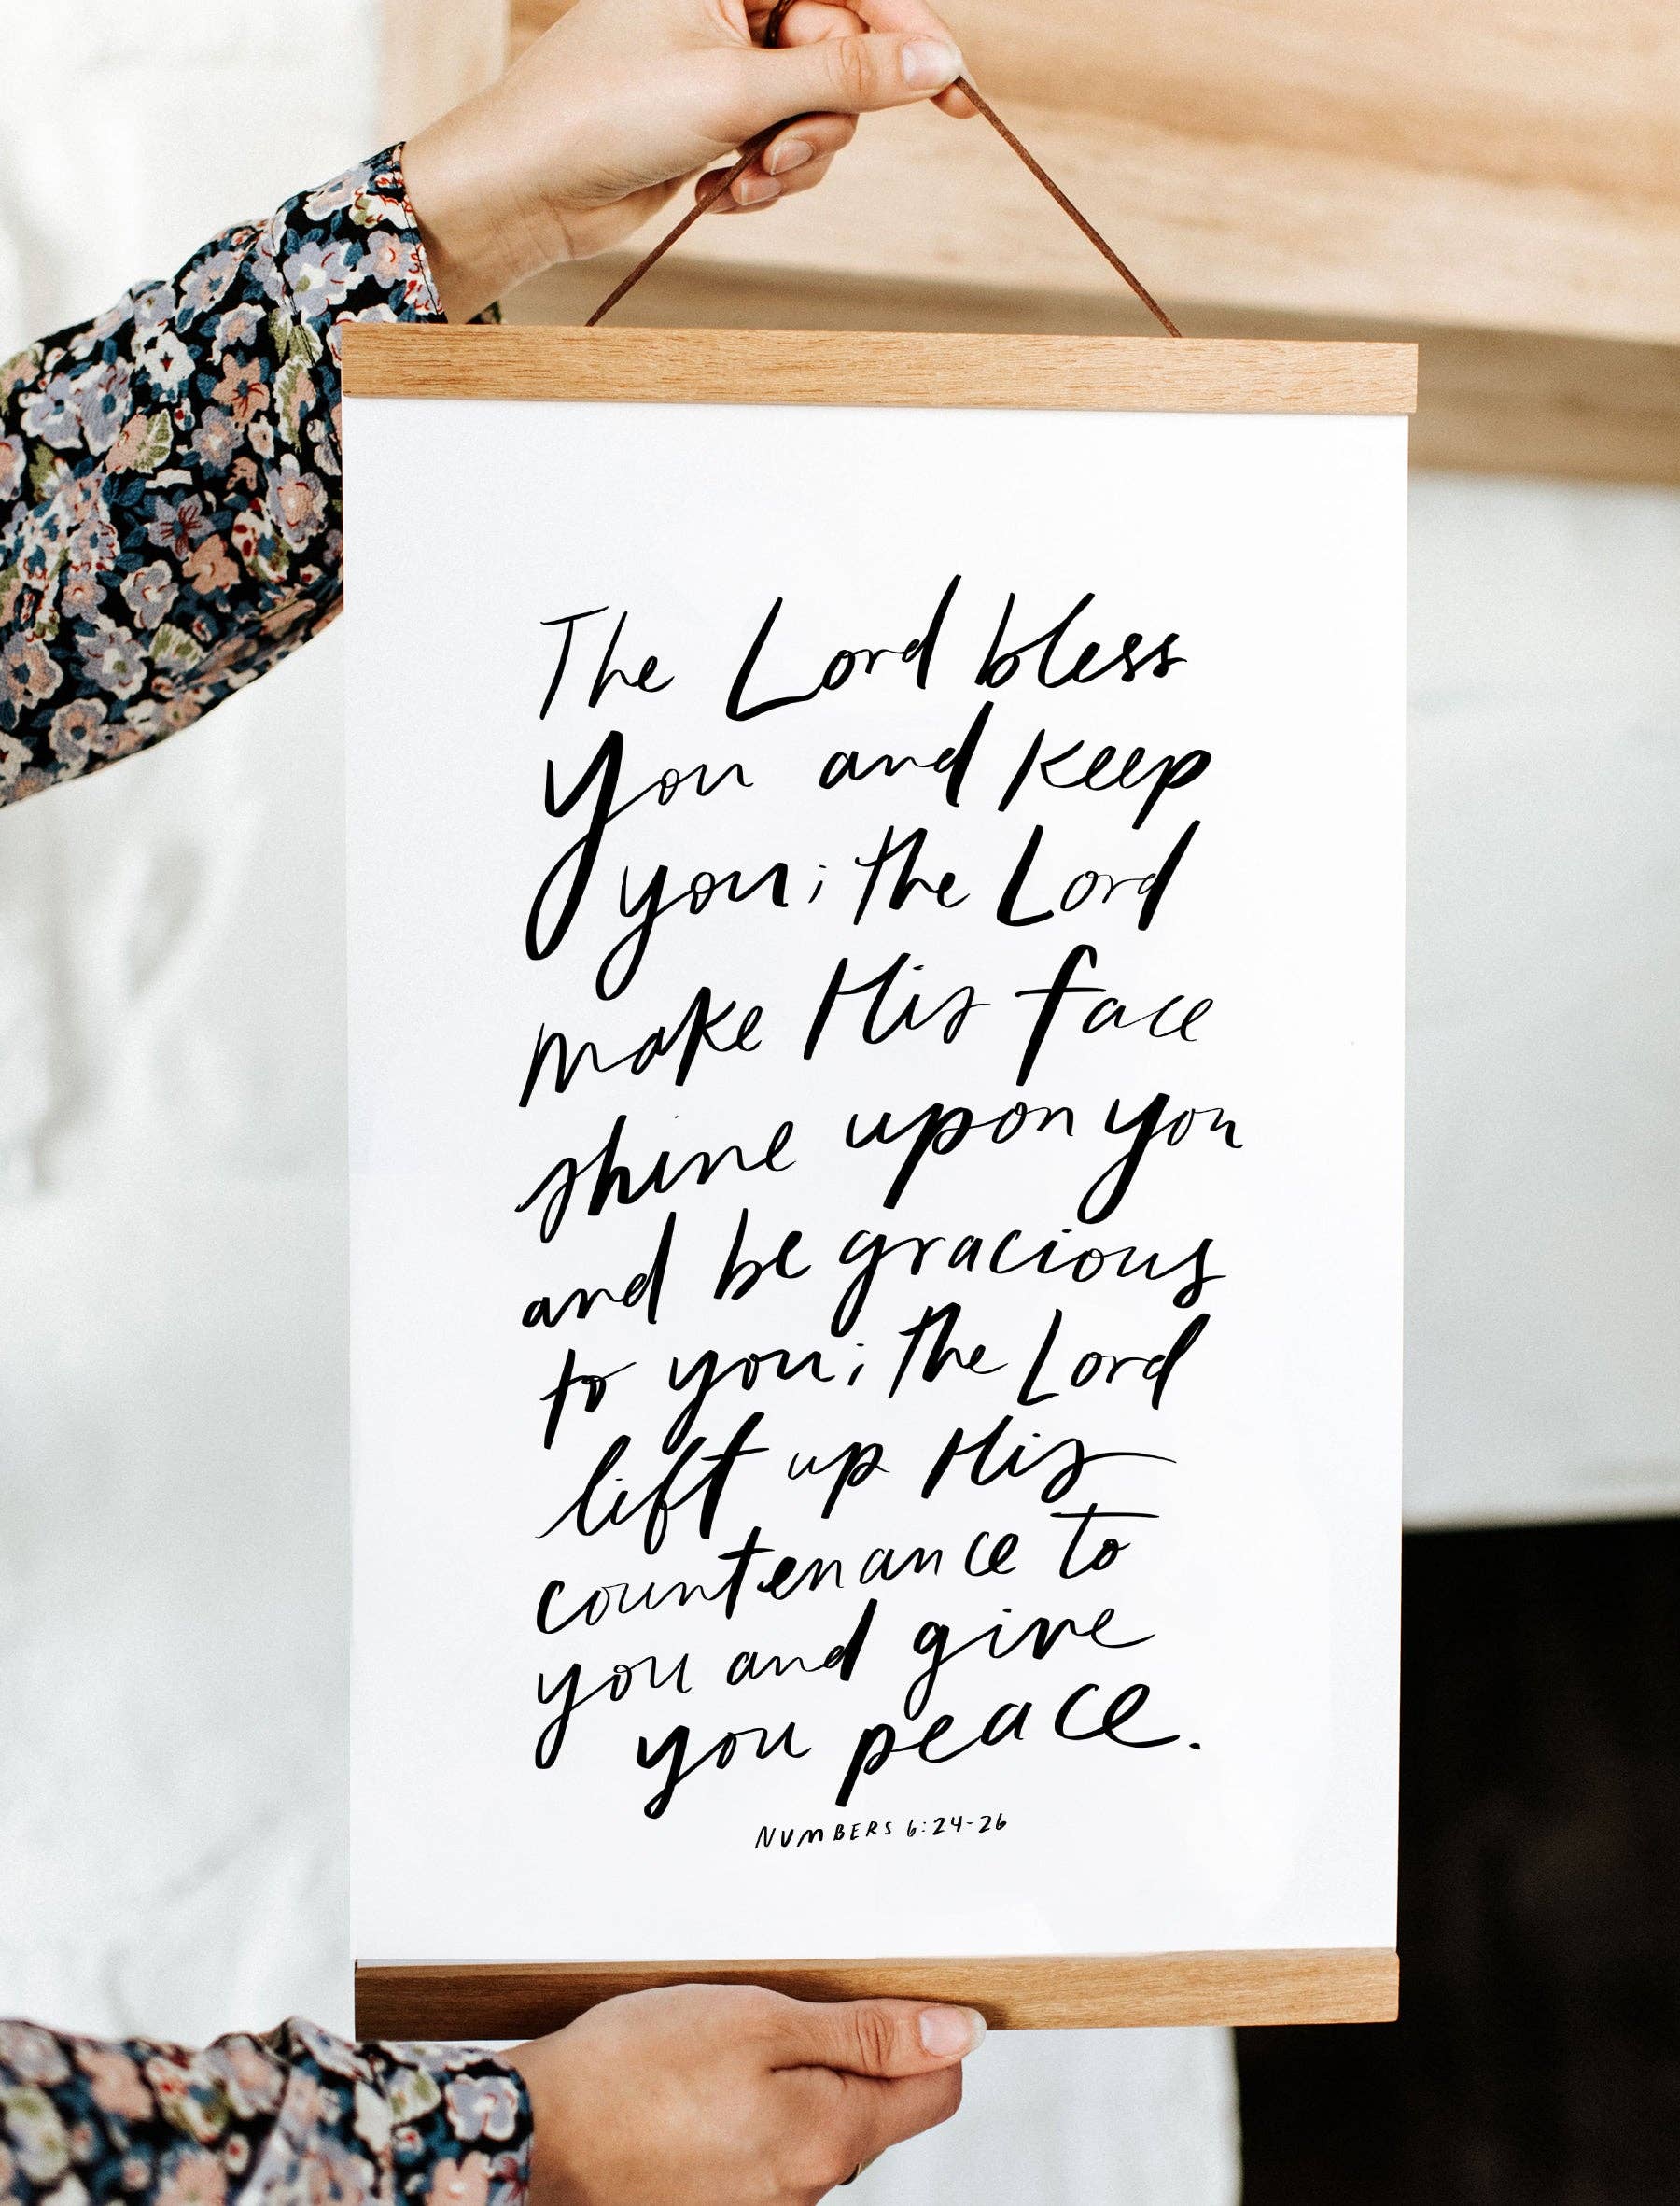 The Lord bless
you and keep
you; the Lord
make His face
shine upon you
and be gracious
to you; the Lord
lift up His
countenance to
you and give
you peace.
NUMBERS 6:24-26